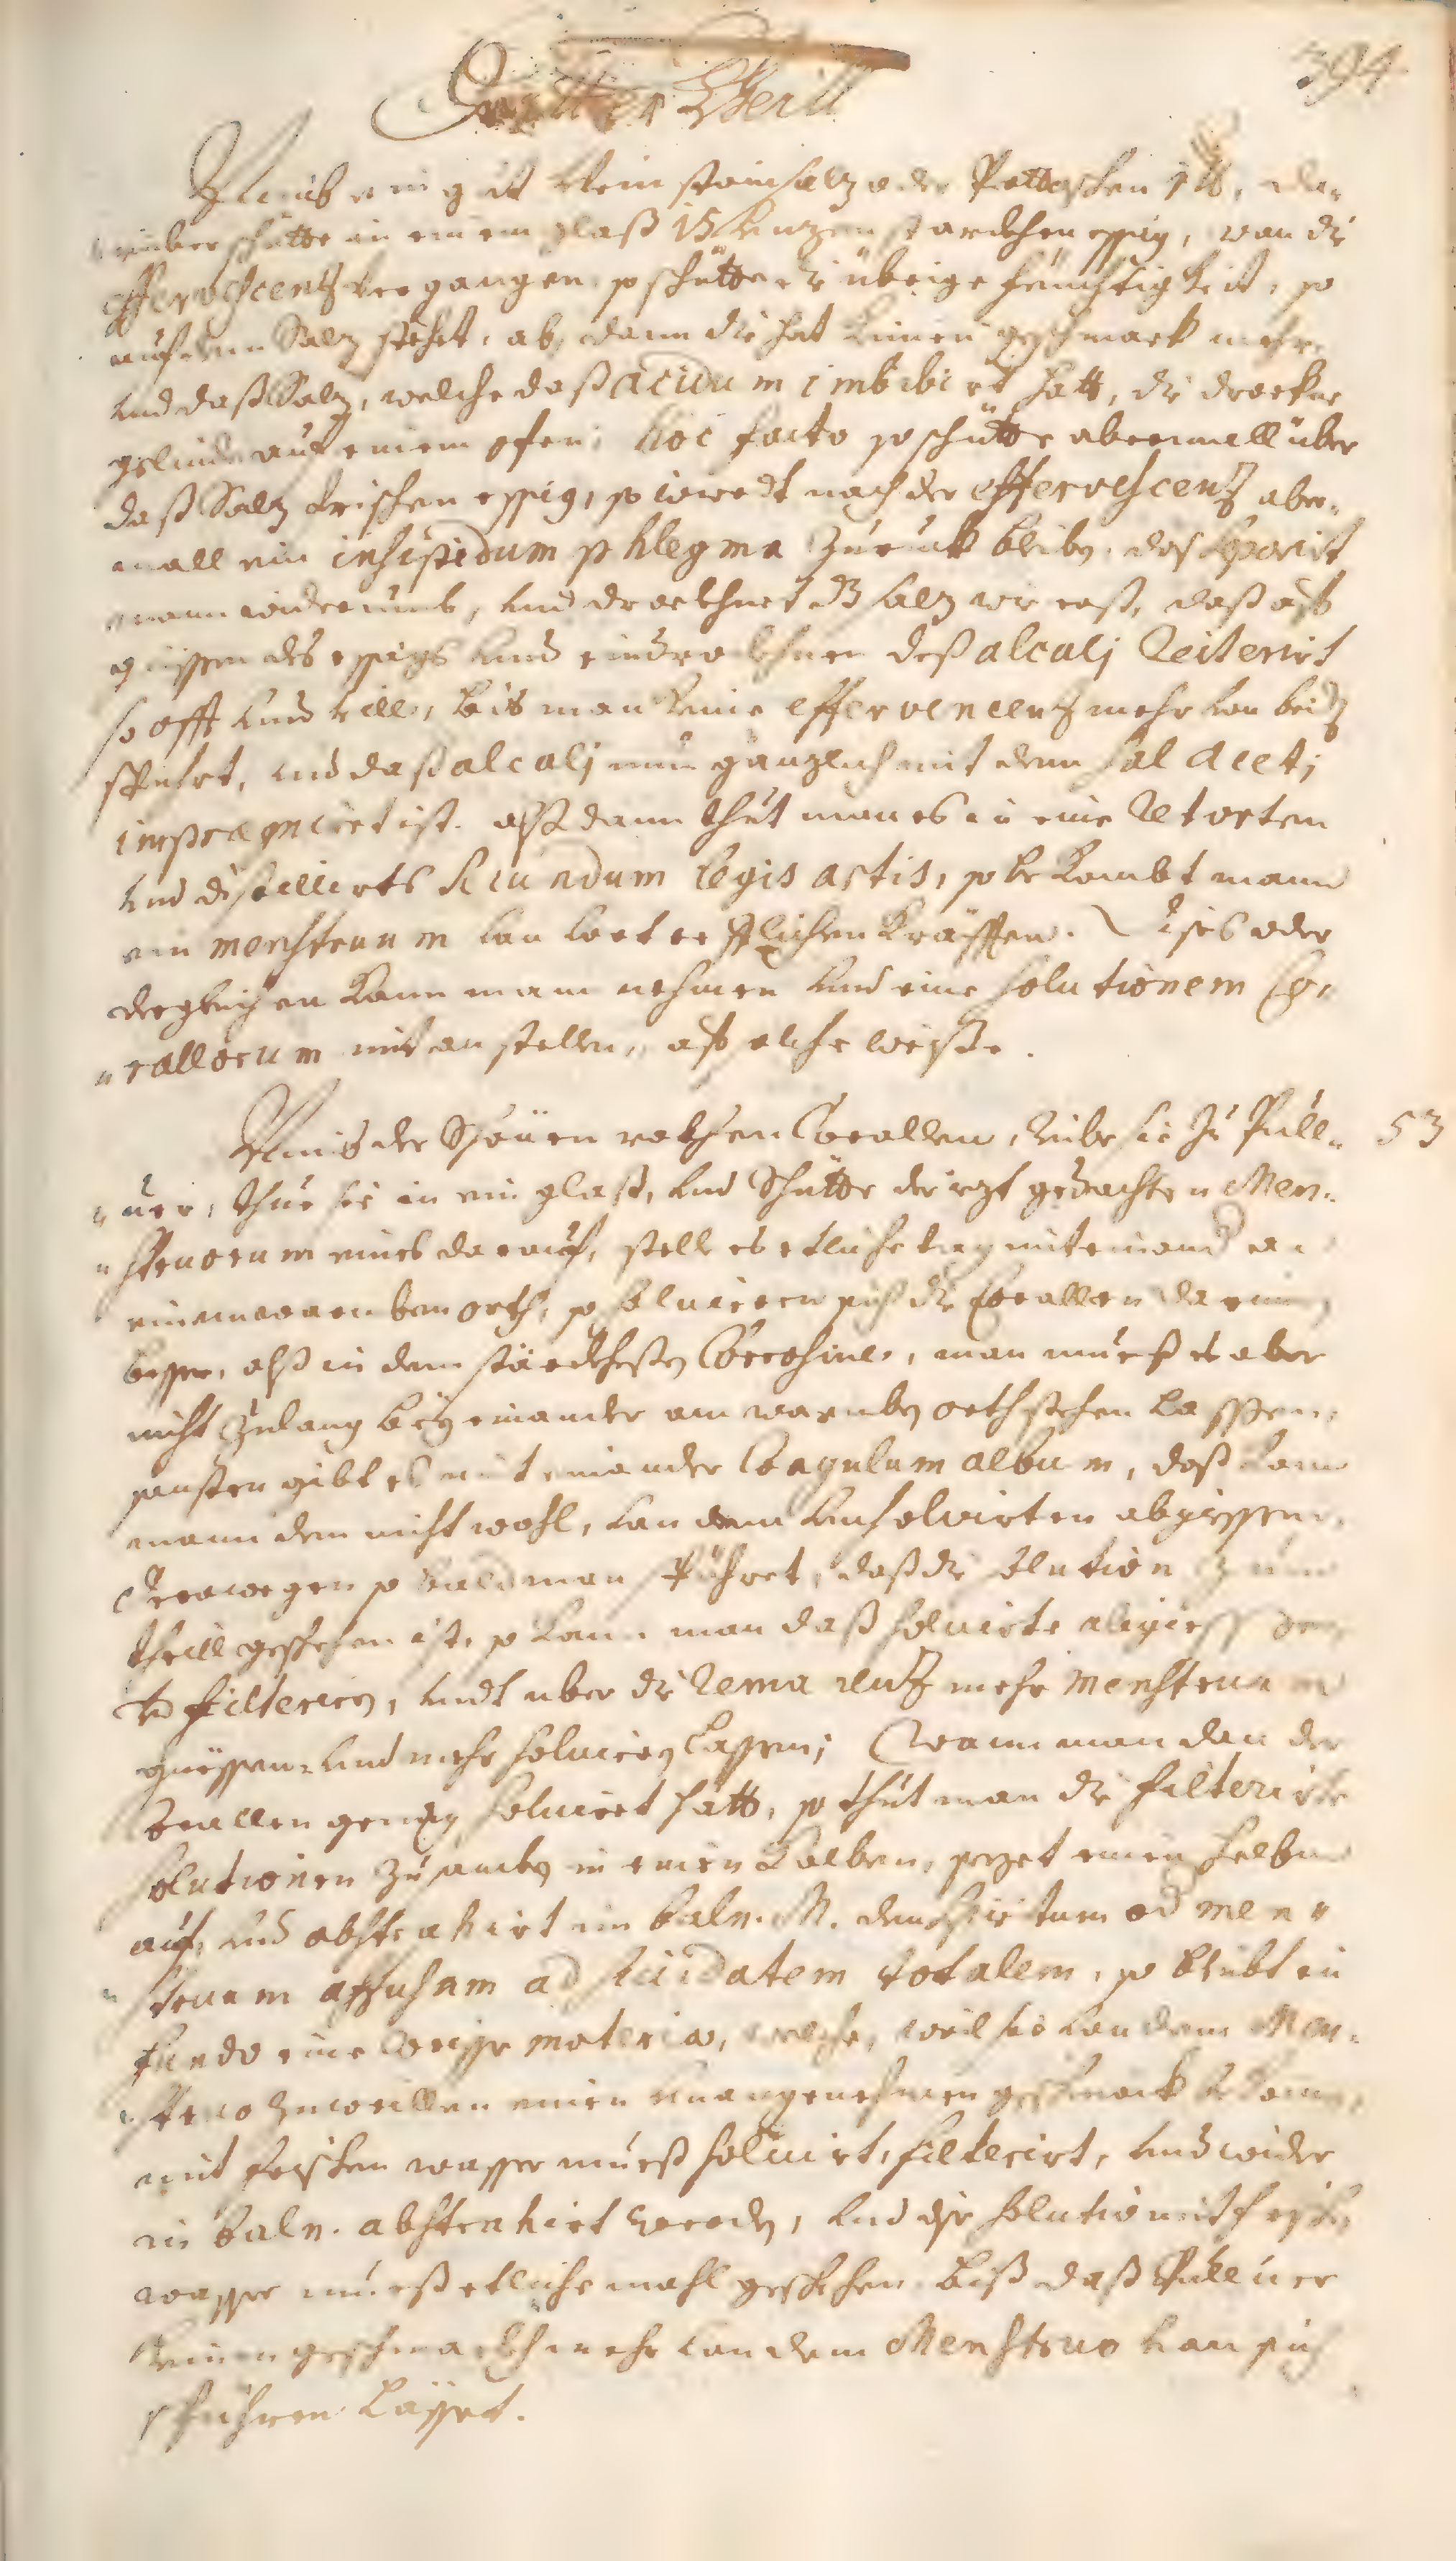 394
Dritter Theill
Nimb ein g ut Weinstainsalz oder Pottaschen 1 lb, da-
rüber schütte in einem glaß 15 Unzen starckhen essig, wan die
effervescenz vergangen, so schütte die übrige feuchtigkeit, so
auf dem Salz stehet, ab, dann die hat keinen geschmack mehr,
und daß Salz, welche daß acidum imbibirt hatt, die drockne
gelind auf einem ofen; hoc facto so schütte abermall über
daß Salz frischen essig, so wirdt nach der effervescenz aber-
mall ein insipidum phlegma zuruk bleiben, das separirt
mann widerumb, und drockhnet dz salz wie erst, daß auf
giessen des essigs und eindrockhnen deß alcali Reiterirt
so offt und vill, biß man keine effervencenz mehr von beiden
spührt, und daß alcali nun gänzlich mit dem sal aceti
impraegniret ist. alßdann thut man es in eine Retorten
und distillirts secundum legis artis, so bekombt mann
ein menstruum von vortrefflichen Kräfften. Dises oder
dergleichen kann mann nehmen und eine solutionem Co-
rallorum mit anstellen, auf solche weiße.
Nimb der Schönen rothen Corallen, reibe sie zu Pull- 53
ver, thue sie in ein glaß, und Schütte der iezt gedachten Men-
struorum eines darauf, stell es etliche tag miteinander an
einem warmben orth, so solviren sich die Corallen darein,
besser, alß in dem stärckhesten Corrosive, man mueß es aber
nicht zulang bey einander am warmben orth stehen lassen,
sonsten gibt es mit einander Coagulum album, daß kan
mann dem nicht wohl, von dem Unsolvirten abgiessen,
Derowegen so bald man spühret, daß die solution zum
theill geschehen ist, so kann man daß solvirte abgiessen
und filteriren, undt uber die Remanenz mehr menstruum
giessen, und mehr solviren lassen; Wann man dan der
Corallen genug solviret hatt, so thut man die filterirte
solutionen zusamben in einen Kolben, sezet einen helbm
auf, und abstrahirt im baln. M. den spiritum od men-
struum affusum ad siccidatem totalem, so bleibt in
fundo eine weisse materia, welche, weil sie von dem Men-
struo zuweillen einen unangenehmen geschmack bekomt,
mit frischen wasser mueß solvirt, filterirt, und wider
in baln. abstrahirt werden, und dise solutio mit frischen
wasser mueß etliche mahl geschehen, biß daß Pullver
keinen geschmackh mehr von dem Menstruo von sich
spühren lässet.